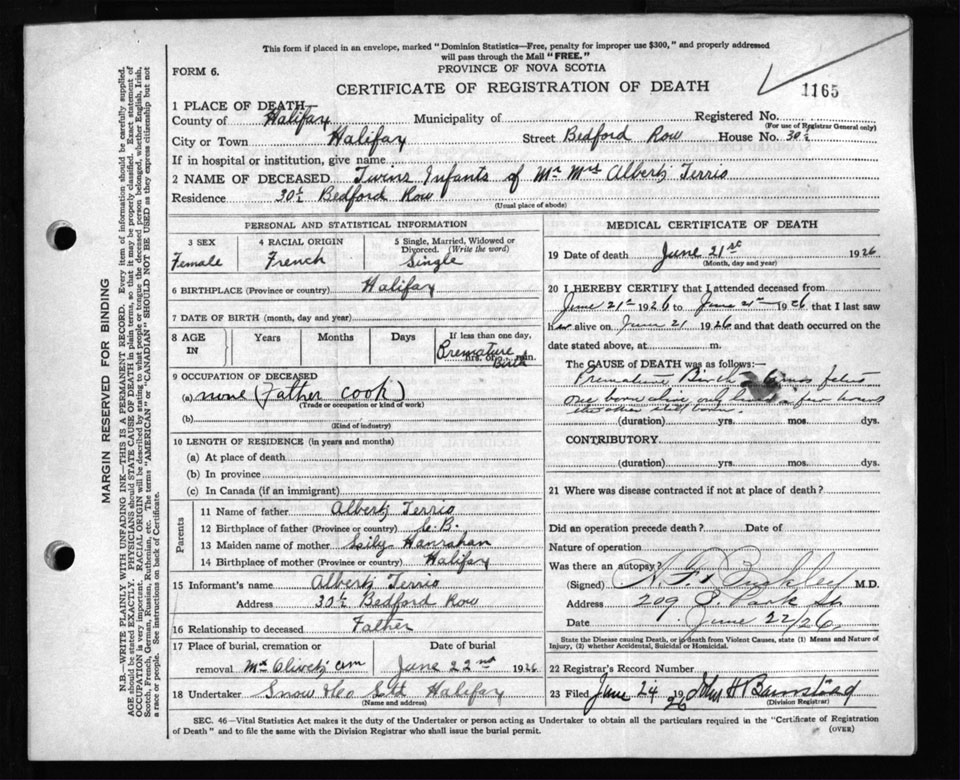 This form if placed in an envelope, marked "Dominion Statistics—Free, penalty for improper use $300," and properly addressed
will pass through the Mail "FREE."
PROVINCE OF NOVA SCOTIA
FORM 6.
CERTIFICATE OF REGISTRATION OF DEATH
1165
1 PLACE OF DEATH
County of Halifax Municipality of Registered No.
(For use of Registrar General only)
City or Town Halifax Street Bedford Row House No. 30½
If in hospital or institution, give name
2 NAME OF DECEASED Twins Infants of Mr Mrs Albert Terrio
Residence 30½ Bedford Row
(Usual place of abode)
PERSONAL AND STATISTICAL INFORMATION
3 SEX 4 RACIAL ORIGIN 5 Single, Married, Widowed or
Divorced. (Write the word)
Female French Single
6 BIRTHPLACE (Province or country) Halifax
7 DATE OF BIRTH (month, day and year)
8 AGE IN Years Months Days If less than one day,
hrs. or min.
Premature Birth
9 OCCUPATION OF DECEASED
(a) none (Father cook)
(Trade or occupation or kind of work)
(b)
(Kind of industry)
10 LENGTH OF RESIDENCE (in years and months)
(a) At place of death
(b) In province
(c) In Canada (if an immigrant)
Parents
11 Name of father Albert Terrio
12 Birthplace of father (Province or country) C.B.
13 Maiden name of mother Hanrahan
14 Birthplace of mother (Province or country) Halifax
15 Informant's name Albert Terrio
Address 30½ Bedford Row
16 Relationship to deceased Father
17 Place of burial, cremation or Date of burial
removal Mt Olivet cem June 22nd 1926
18 Undertaker Snow & Co Ltd Halifax
(Name and address)
MEDICAL CERTIFICATE OF DEATH
19 Date of death June 21st 1926
(Month, day and year)
20 I HEREBY CERTIFY that I attended deceased from
June 21st 1926 to June 21st 1926 that I last saw
her alive on June 21 1926 and that death occurred on the
date stated above, at m.
The CAUSE OF DEATH was as follows:—
Premature Birth 6 mos
one born alive only lived a few hours
the other still born.
(duration) yrs. mos. dys.
CONTRIBUTORY
(duration) yrs. mos. dys.
21 Where was disease contracted if not at place of death?
Did an operation precede death? Date of
Nature of operation
Was there an autopsy?
(Signed) Buckley M.D.
Address 209 S. Park St
Date June 22/26
State the Disease causing Death, or in death from Violent Causes, state (1) Means and Nature of
Injury, (2) whether Accidental, Suicidal or Homicidal.
22 Registrar's Record Number
23 Filed June 24 1926 John H Barnstead
(Division Registrar)
SEC. 46—Vital Statistics Act makes it the duty of the Undertaker or person acting as Undertaker to obtain all the particulars required in the "Certificate of Registration
of Death" and to file the same with the Division Registrar who shall issue the burial permit.
(OVER)
MARGIN RESERVED FOR BINDING
N.B.—WRITE PLAINLY WITH UNFADING INK—THIS IS A PERMANENT RECORD. Every item of information should be carefully supplied.
AGE should be stated EXACTLY. PHYSICIANS should STATE CAUSE OF DEATH in plain terms, so that it may be properly classified. Exact statement of
OCCUPATION is very important. RACIAL ORIGIN will be described by stating to what people or tongue the deceased person belonged, whether English, Irish,
Scotch, French, German, Russian, Ruthenian, etc. The terms "AMERICAN" or "CANADIAN" SHOULD NOT BE USED as they express citizenship but not
a race or people. See instructions on back of Certificate.